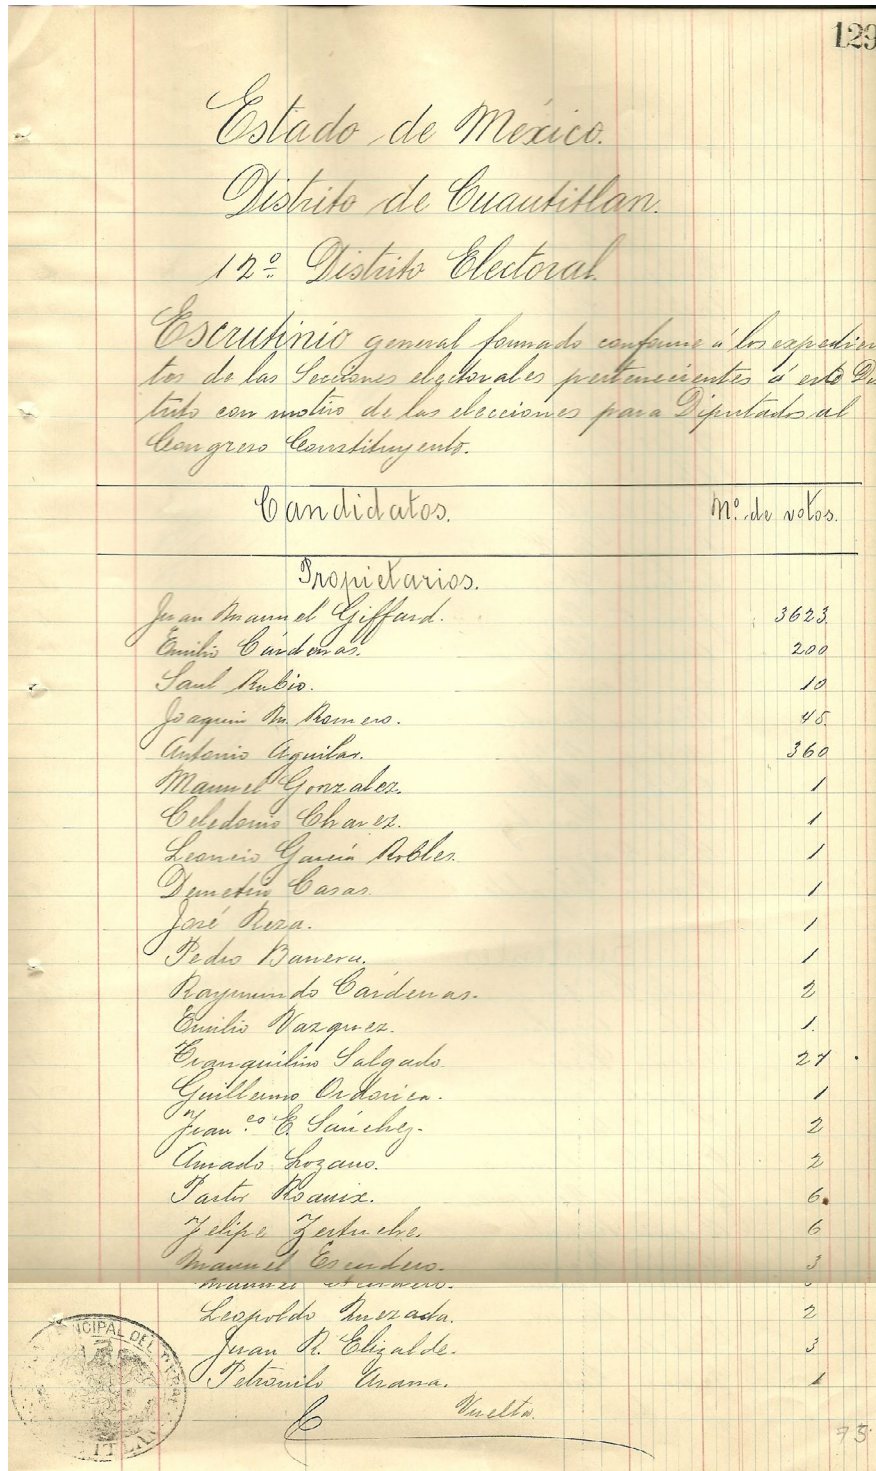 129
Estado de México.
Distrito de Cuautitlan.
12º Distrito Electoral.
Escrutinio general formado conforme á los expedien
tes de las Secciones electorales pertenecientes á este Dis
trito con motivo de las elecciones para Diputados al
Congreso Constituyente.
Candidatos. Nº de votos.
Propietarios.
Juan Manuel Giffard. 3623.
Emilio Cárdenas. 200
Saul Rubio. 10
Joaquin M. Romero. 45
Antonio Aguilar. 360
Manuel Gonzalez. 1
Celedonio Chavez. 1
Leoncio García Robles. 1
Demetrio Casas 1
José Reza. 1
Pedro 1
Raymundo Cárdenas. 2
Emilio Vazquez. 1.
Tranquilino Salgado 27
Guillermo Ordorica. 1
Fran.co E. Sánchez. 2
Amado Lozano. 2
Pastor Roauix. 6
Felipe Zertuche. 6
Manuel Escudero. 3
Leopoldo Quezada. 2
Juan R. Elizalde. 3
Petronilo Arana. 1
Vuelta.
73